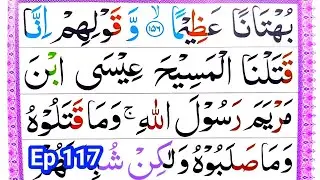 بُهْتَانًا عَظِيْمًا ۙ﴿۱۵۶﴾ وَّ قَوْلِهِمْ اِنَّا
قَتَلْنَا الْمَسِيْحَ عِيْسَى ابْنَ
مَرْيَمَ رَسُوْلَ اللّٰهِ ۚ وَمَا قَتَلُوْهُ
وَمَا صَلَبُوْهُ وَلٰكِنْ شُبِّهَ لَهُمْ
Ep.117